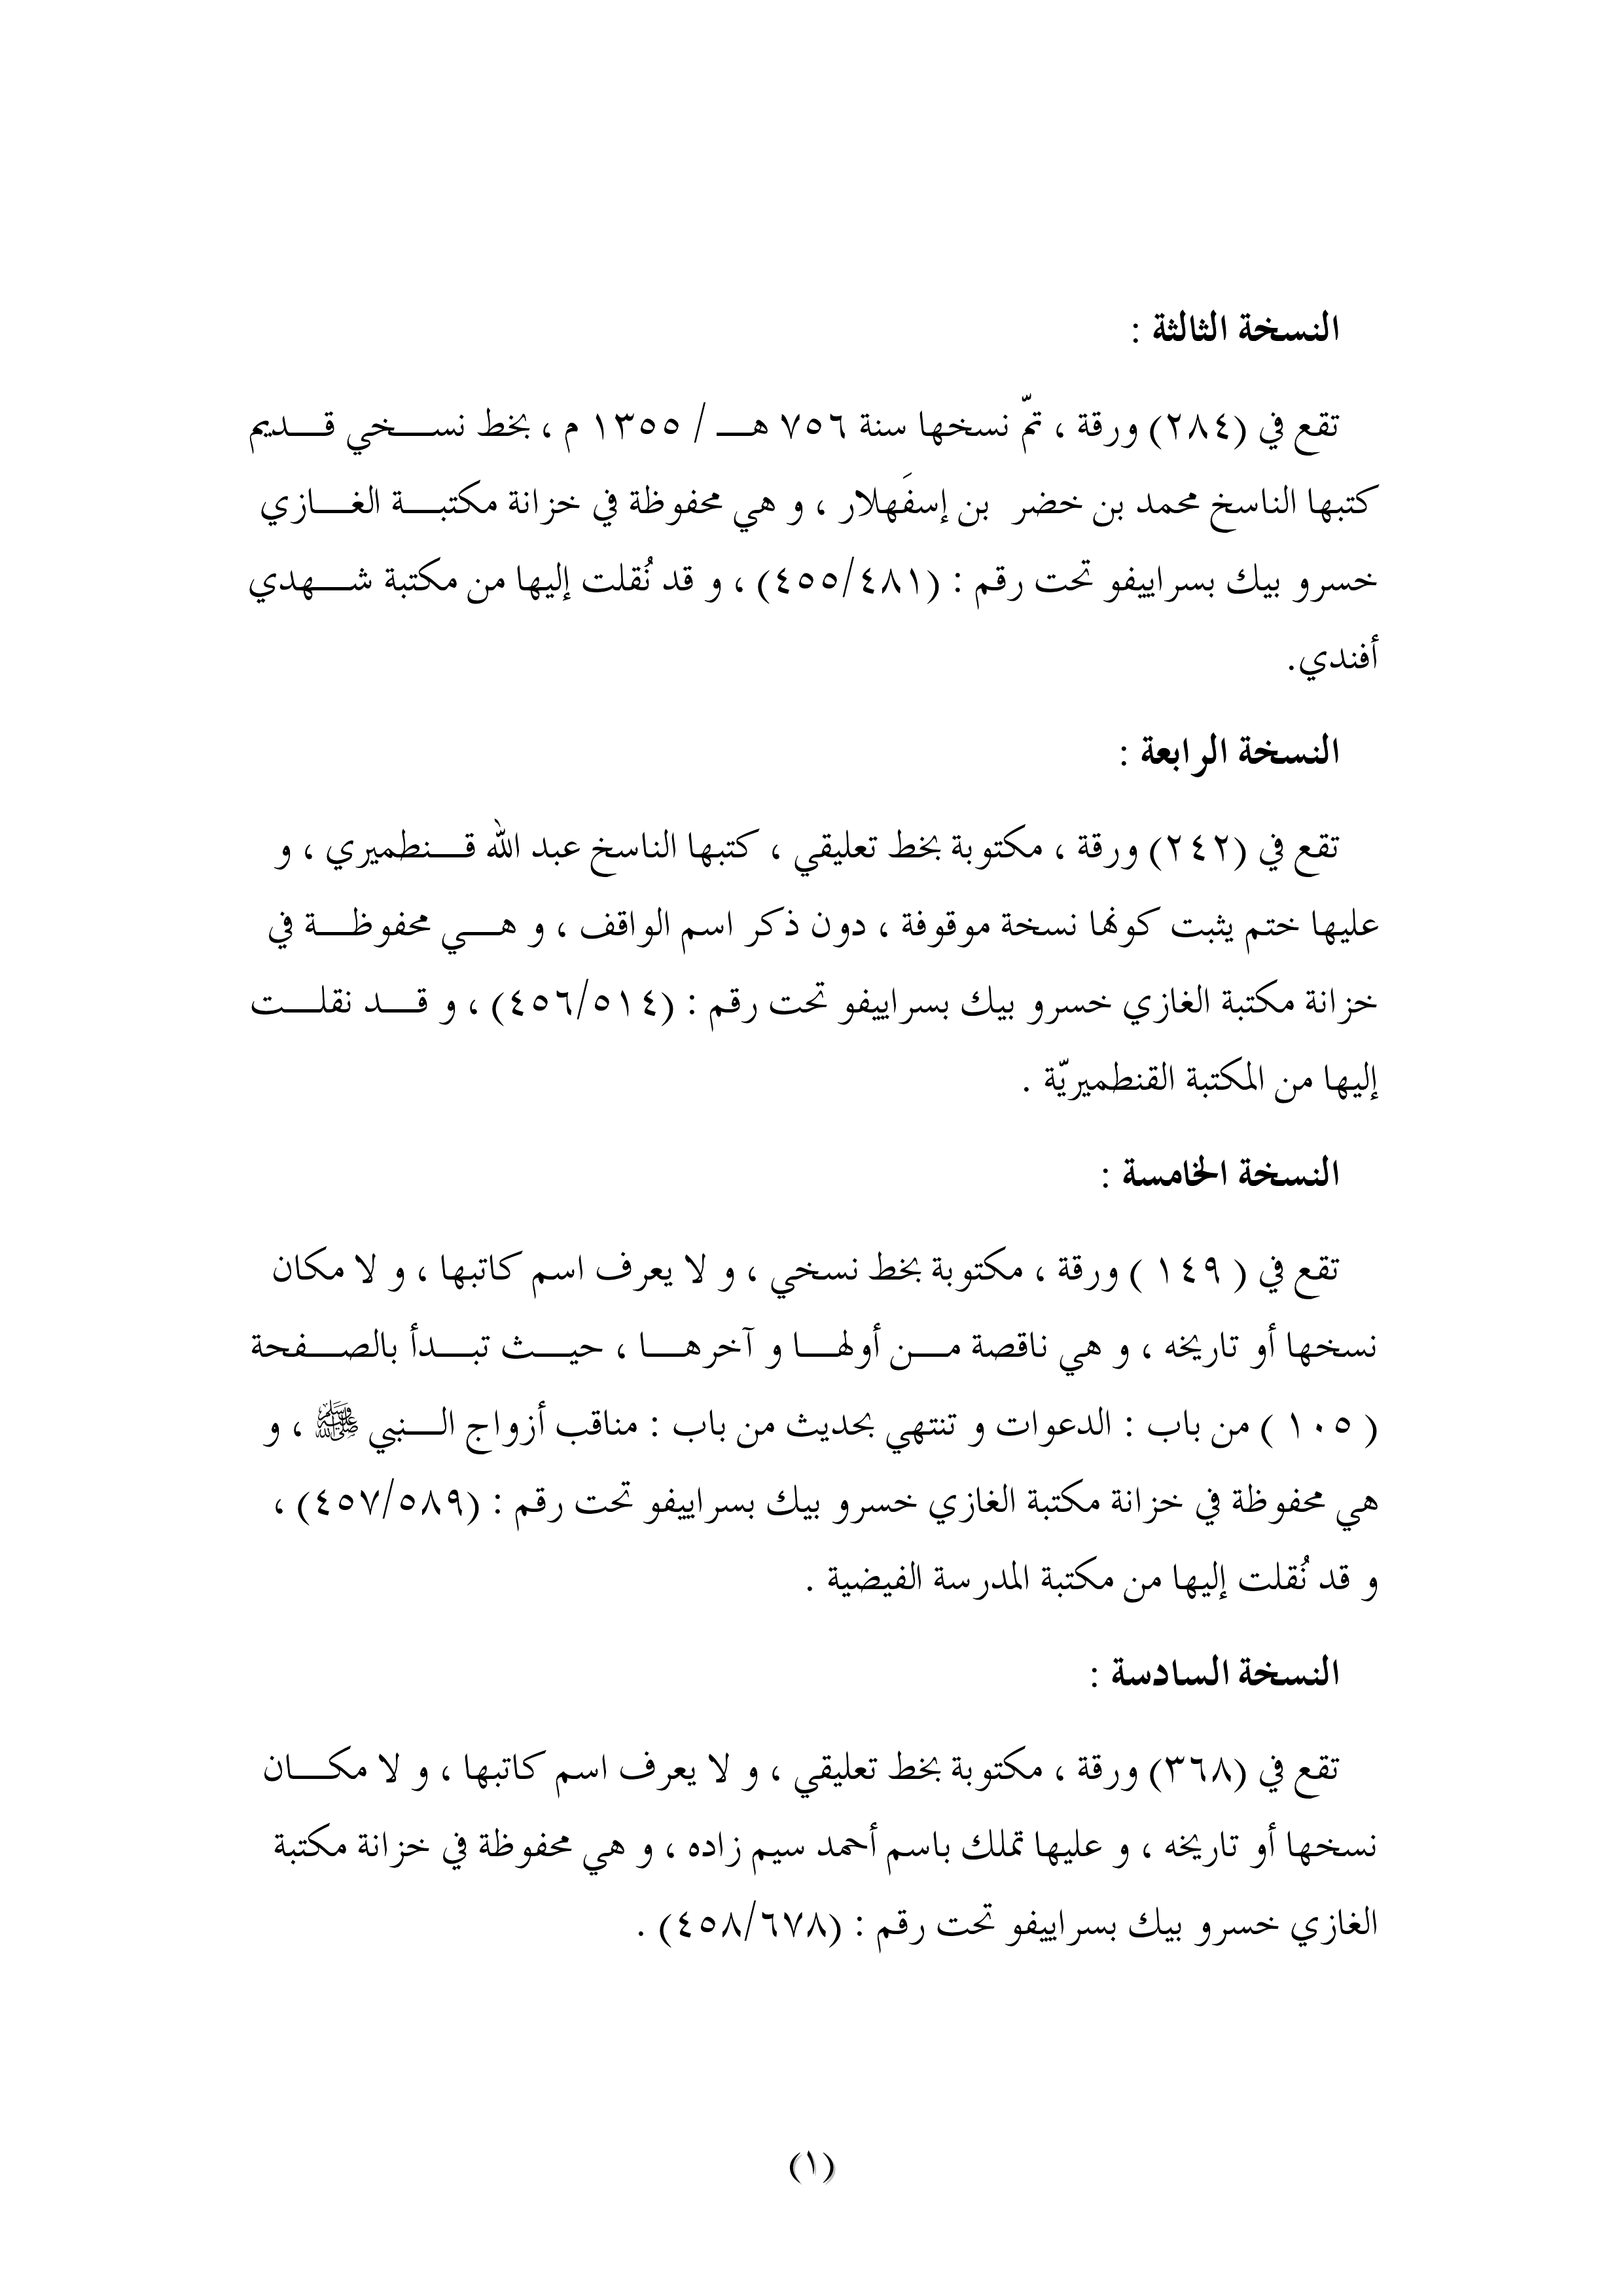 النسخة الثالثة :
تقع في (٢٨٤) ورقة ، تمّ نسخها سنة ٧٥٦ هـ / ١٣٥٥ م ، بخط نسخي قديم
كتبها الناسخ محمد بن خضر بن إسفَهلار ، و هي محفوظة في خزانة مكتبة الغازي
خسرو بيك بسراييفو تحت رقم : (٤٥٥/٤٨١) ، و قد نُقلت إليها من مكتبة شهدي
أفندي.
النسخة الرابعة :
تقع في (٢٤٢) ورقة ، مكتوبة بخط تعليقي ، كتبها الناسخ عبد الله قنطميري ، و
عليها ختم يثبت كونها نسخة موقوفة ، دون ذكر اسم الواقف ، و هي محفوظة في
خزانة مكتبة الغازي خسرو بيك بسراييفو تحت رقم : (٤٥٦/٥١٤) ، و قد نقلت
إليها من المكتبة القنطميريّة .
النسخة الخامسة :
تقع في ( ١٤٩ ) ورقة ، مكتوبة بخط نسخي ، و لا يعرف اسم كاتبها ، و لا مكان
نسخها أو تاريخه ، و هي ناقصة من أولها و آخرها ، حيث تبدأ بالصفحة
( ١٠٥ ) من باب : الدعوات و تنتهي بحديث من باب : مناقب أزواج النبي ﷺ ، و
هي محفوظة في خزانة مكتبة الغازي خسرو بيك بسراييفو تحت رقم : (٤٥٧/٥٨٩) ،
و قد نُقلت إليها من مكتبة المدرسة الفيضية .
النسخة السادسة :
تقع في (٣٦٨) ورقة ، مكتوبة بخط تعليقي ، و لا يعرف اسم كاتبها ، و لا مكان
نسخها أو تاريخه ، و عليها تملك باسم أحمد سيم زاده ، و هي محفوظة في خزانة مكتبة
الغازي خسرو بيك بسراييفو تحت رقم : (٤٥٨/٦٧٨) .
(١)